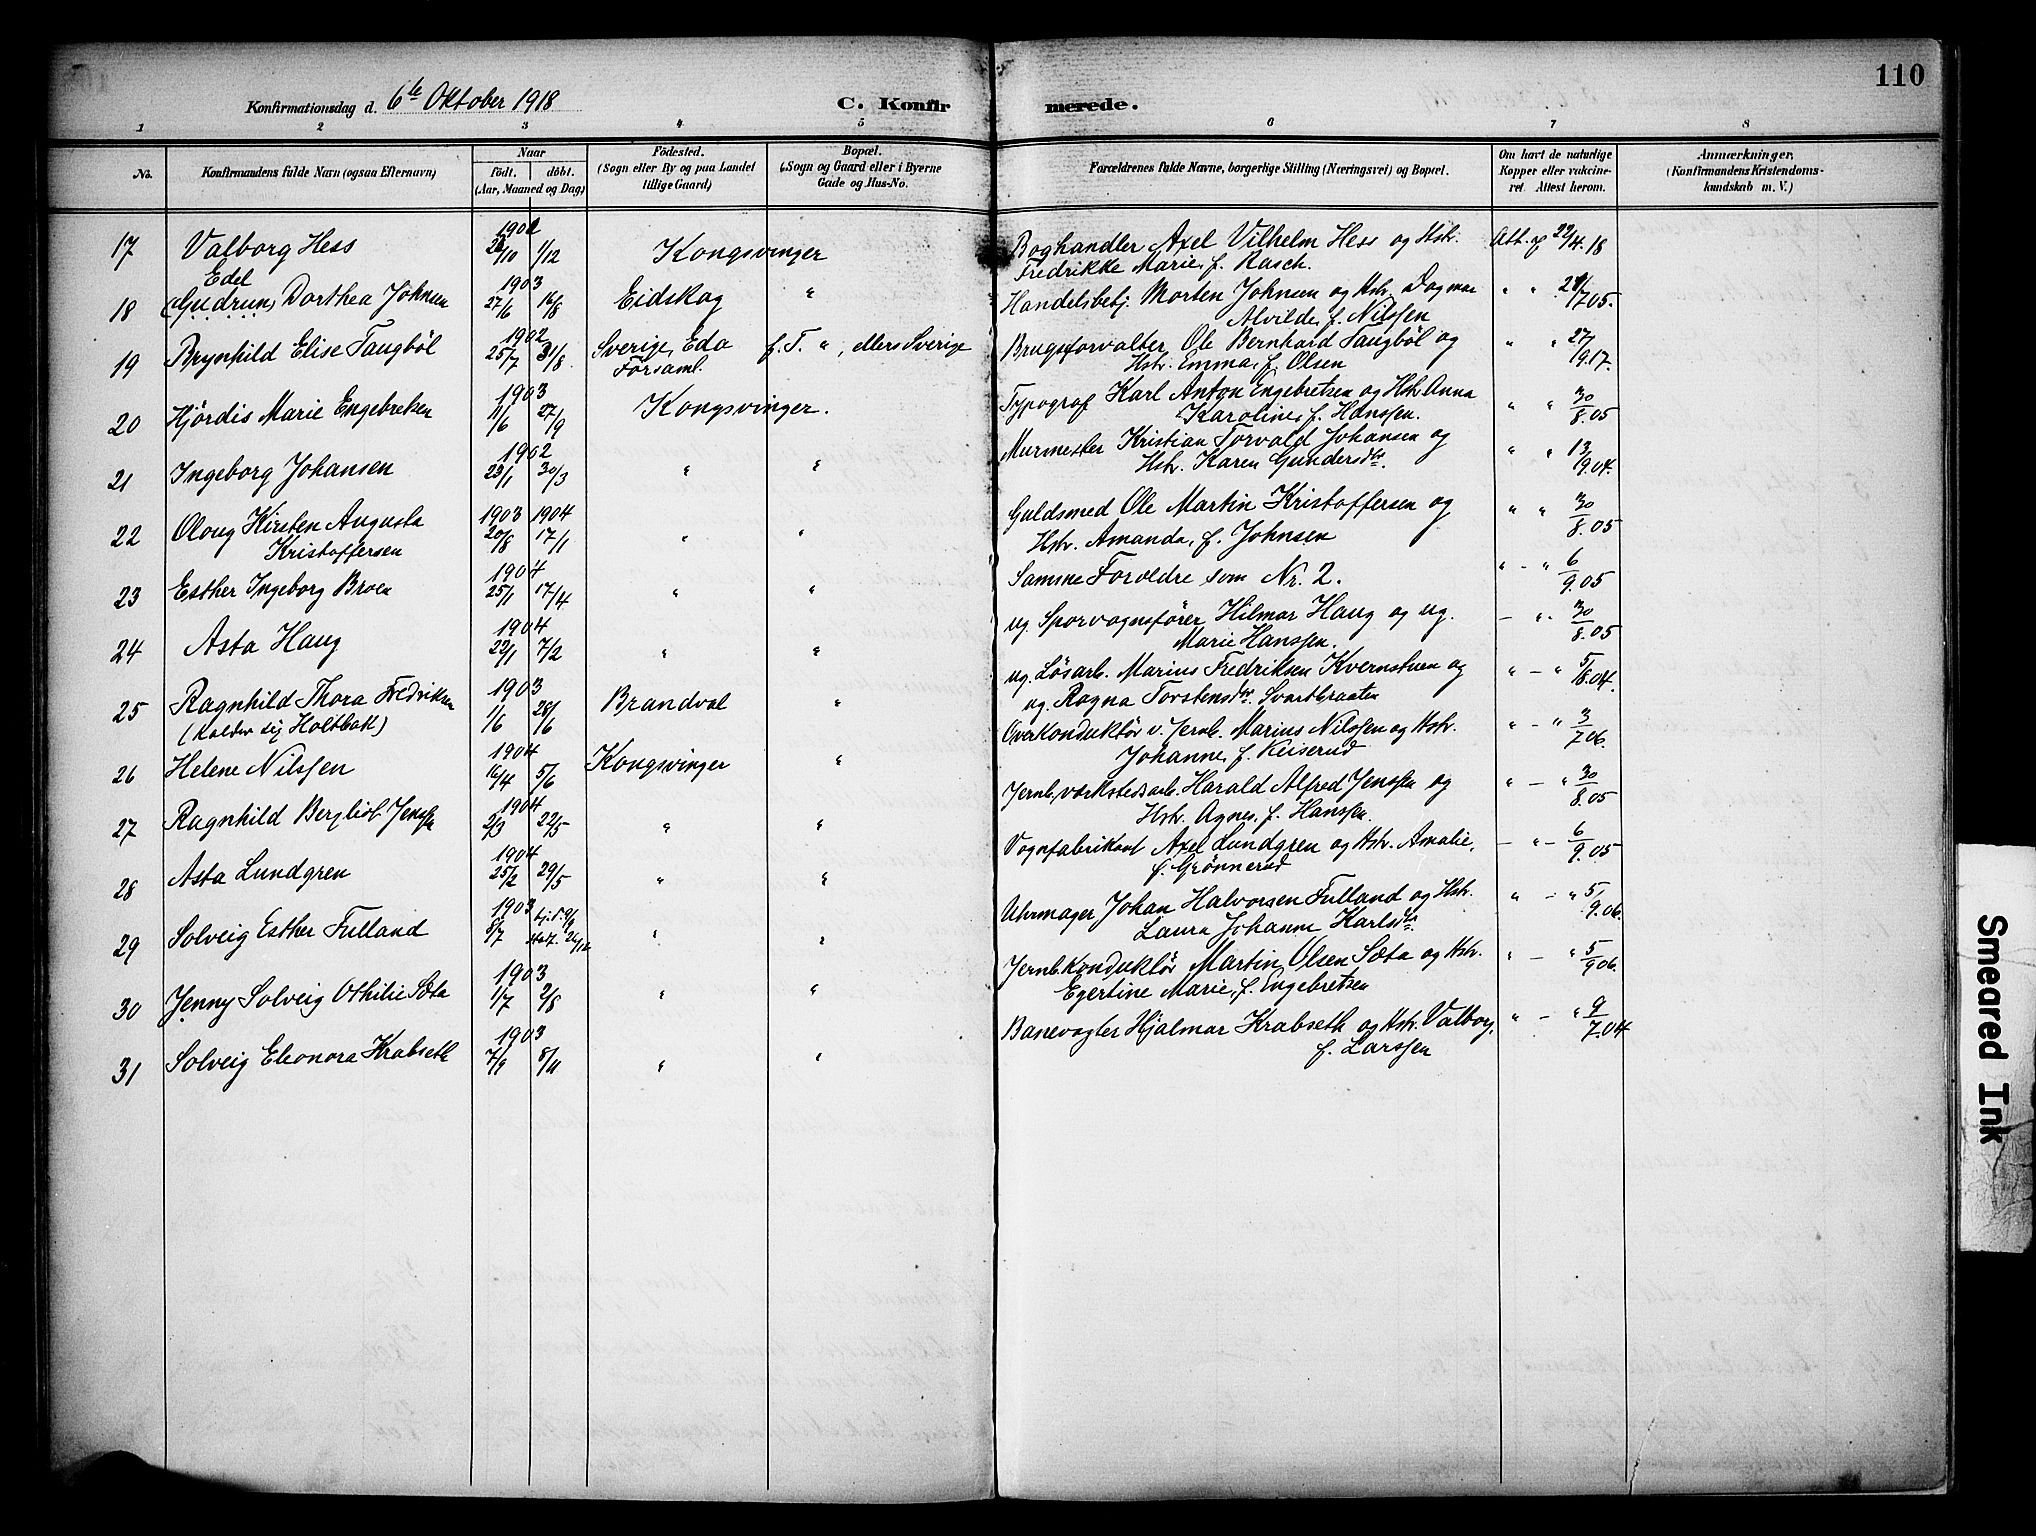 110
Konfirmationsdag d. 6te Oktober 1918
C. Konfirmerede.
1 2 3 4 5 6 7 8
No.
Konfirmandens fulde Navn (ogsaa Efternavn)
Naar
födt. döbt.
(Aar, Maaned og Dag)
Födested.
(Sogn eller By og paa Landet
tillige Gaard)
Bopæl.
(Sogn og Gaard eller i Byerne
Gade og Hus-No.
Forældrenes fulde Navne, borgerlige Stilling (Næringsvei) og Bopæl.
Om havt de naturlige
Kopper eller vakcine-
ret. Attest herom.
Anmærkninger.
(Konfirmandens Kristendoms-
kundskab m. V.)
17 Valborg Hess 1/12 Kongsvinger Boghandler Axel Vilhelm Hess og Hstr. Att. af 22/4.18
Fredrikke Marie, f. Rasch.
Edel 1903
18 (Gudrun) Dorthea Johnsen 27/6 16/8 Eidskog " Handelsbetj. Morten Johnsen og Hstr. Dagmar " "
Alvilde, f. Nilssen
1902
19 Brynhild Elise Taugböl 25/7 31/8 Sverige, Eda f. T. ", ellers Sverige Brugsforvalter Ole Bernhard Taugböl og " " 27/9.17.
Forsaml. Hstr. Emma, f. Olsen
1903
20 Hjördis Marie Engebretsen 11/6 27/9 Kongsvinger. Typograf Karl Anton Engebretsen og Hstr. Anna " " 30/8.05
Karoline, f. Hanssen.
1902
21 Ingeborg Johansen 23/1 30/3 " " Murmester Kristian Torvald Johansen og " " 13/9.04.
Hstr. Karen Gundersdtr.
1903 1904
22 Oloug Kirsten Augusta 20/8 17/1 " " Guldsmed Ole Martin Kristoffersen og " " 30/8.05
Kristoffersen Hstr. Amanda, f. Johnsen
1904
23 Esther Ingeborg Broen 25/1 17/4 " " Samme Forældre som Nr. 2. " - " 6/9.05
1904
24 Asta Haug 22/1 7/2 " " ug. Sporvognsförer Hilmar Haug og ug. - " 30/8.05
Marie Hanssen.
1903
25 Ragnhild Thora Fredriksen 1/6 28/6 Brandval " ug. Lösarb. Marius Fredriksen Kvernstuen og " - " 5/8.04.
(kalder sig Holtbak) ug. Ragna Torstensdtr. Svartbraaten
1904
26 Helene Nilssen 16/4 5/6 Kongsvinger " Overkonduktör v. Jernb. Marius Nilssen og Hstr. " - " 3/7.06.
Johanne, f. Keiserud
1904
27 Ragnhild Bergliot Jenssen 2/3 22/5 " " Jernb.værkstedsarb. Harald Alfred Jenssen og " - " 30/8.05
Hstr. Agnes, f. Hanssen.
1904
28 Asta Lundgren 25/2 29/5 " " Vognfabrikant Axel Lundgren og Hstr. Amalie, - " - 6/9.05
f. Grönnerud
1903
29 Solveig Esther Fulland 8/7 " " Uhrmager Johan Halvorsen Fulland og Hstr. " - " 5/9.06.
Laura Johanne Karlsdtr.
1903
30 Jenny Solveig Othilie Sæta 1/7 2/8 " " Jernb.konduktör Martin Olsen Sæta og Hstr. " - " 5/9.06.
Egertine Marie, f. Engebretsen
1903
31 Solveig Eleonora Krabseth 7/9 8/11 " " Banevogter Hjalmar Krabseth og Hstr. Valborg, " - " 9/7.04
f. Larssen
Smeared Ink